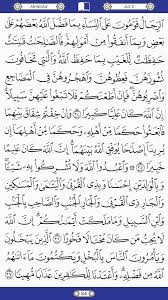 AN-NISAA' JUZ 5
ٱلرِّجَالُ قَوَّٰمُونَ عَلَى ٱلنِّسَآءِ بِمَا فَضَّلَ ٱللَّهُ بَعْضَهُمْ عَلَىٰ
بَعْضٍ وَبِمَآ أَنفَقُوا۟ مِنْ أَمْوَٰلِهِمْ ۚ فَٱلصَّٰلِحَٰتُ قَٰنِتَٰتٌ
حَٰفِظَٰتٌ لِّلْغَيْبِ بِمَا حَفِظَ ٱللَّهُ ۚ وَٱلَّٰتِى تَخَافُونَ
نُشُوزَهُنَّ فَعِظُوهُنَّ وَٱهْجُرُوهُنَّ فِى ٱلْمَضَاجِعِ
وَٱضْرِبُوهُنَّ ۖ فَإِنْ أَطَعْنَكُمْ فَلَا تَبْغُوا۟ عَلَيْهِنَّ سَبِيلًا ۗ
إِنَّ ٱللَّهَ كَانَ عَلِيًّا كَبِيرًا ٣٤ وَإِنْ خِفْتُمْ شِقَاقَ بَيْنِهِمَا
فَٱبْعَثُوا۟ حَكَمًا مِّنْ أَهْلِهِۦ وَحَكَمًا مِّنْ أَهْلِهَآ إِن
يُرِيدَآ إِصْلَٰحًا يُوَفِّقِ ٱللَّهُ بَيْنَهُمَآ ۗ إِنَّ ٱللَّهَ كَانَ عَلِيمًا
خَبِيرًا ٣٥ ۞ وَٱعْبُدُوا۟ ٱللَّهَ وَلَا تُشْرِكُوا۟ بِهِۦ شَيْـًٔا ۖ
وَبِٱلْوَٰلِدَيْنِ إِحْسَٰنًا وَبِذِى ٱلْقُرْبَىٰ وَٱلْيَتَٰمَىٰ وَٱلْمَسَٰكِينِ
وَٱلْجَارِ ذِى ٱلْقُرْبَىٰ وَٱلْجَارِ ٱلْجُنُبِ وَٱلصَّاحِبِ بِٱلْجَنۢبِ
وَٱبْنِ ٱلسَّبِيلِ وَمَا مَلَكَتْ أَيْمَٰنُكُمْ ۗ إِنَّ ٱللَّهَ لَا يُحِبُّ
مَن كَانَ مُخْتَالًا فَخُورًا ٣٦ ٱلَّذِينَ يَبْخَلُونَ
وَيَأْمُرُونَ ٱلنَّاسَ بِٱلْبُخْلِ وَيَكْتُمُونَ مَآ ءَاتَىٰهُمُ ٱللَّهُ
مِن فَضْلِهِۦ ۗ وَأَعْتَدْنَا لِلْكَٰفِرِينَ عَذَابًا مُّهِينًا ٣٧